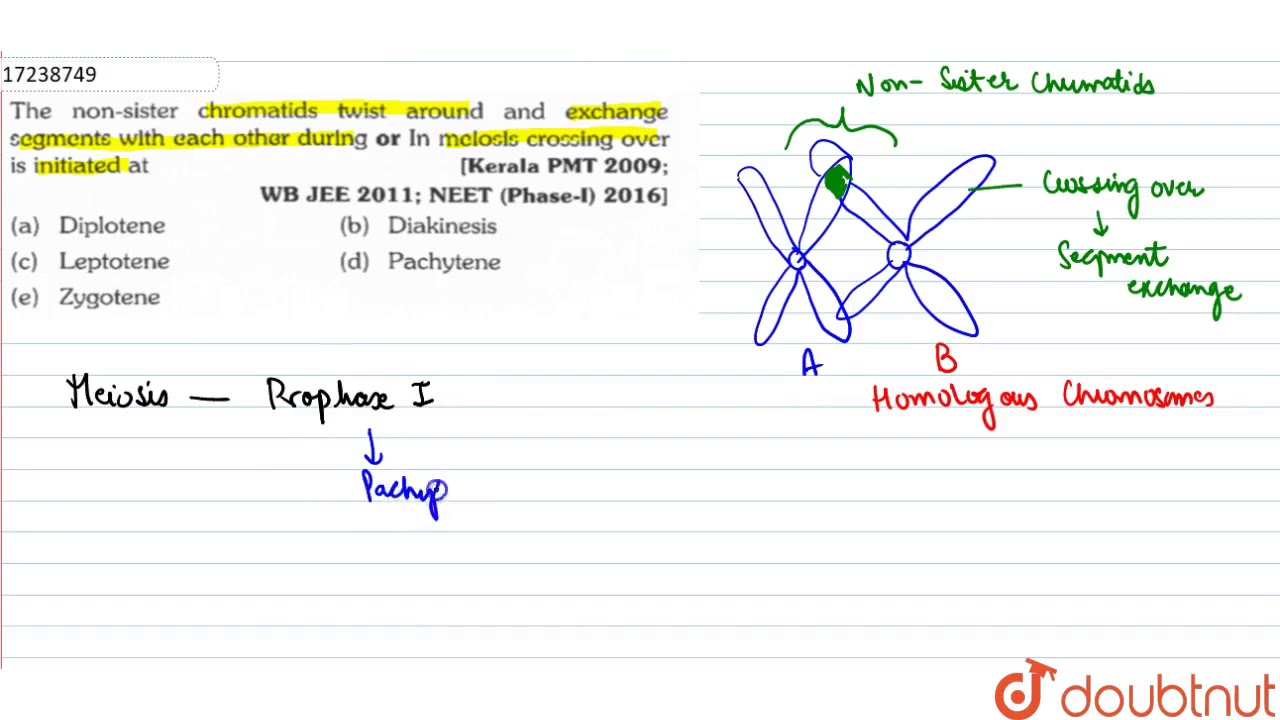 17238749
The non-sister chromatids twist around and exchange
segments with each other during or In meiosis crossing over
is initiated at [Kerala PMT 2009;
WB JEE 2011; NEET (Phase-I) 2016]
(a) Diplotene (b) Diakinesis
(c) Leptotene (d) Pachytene
(e) Zygotene
Non- Sister Chromatids
Crossing over
Segment
exchange
A B
Homologous Chromosomes
Meiosis — Prophase I
Pachy
doubtnut